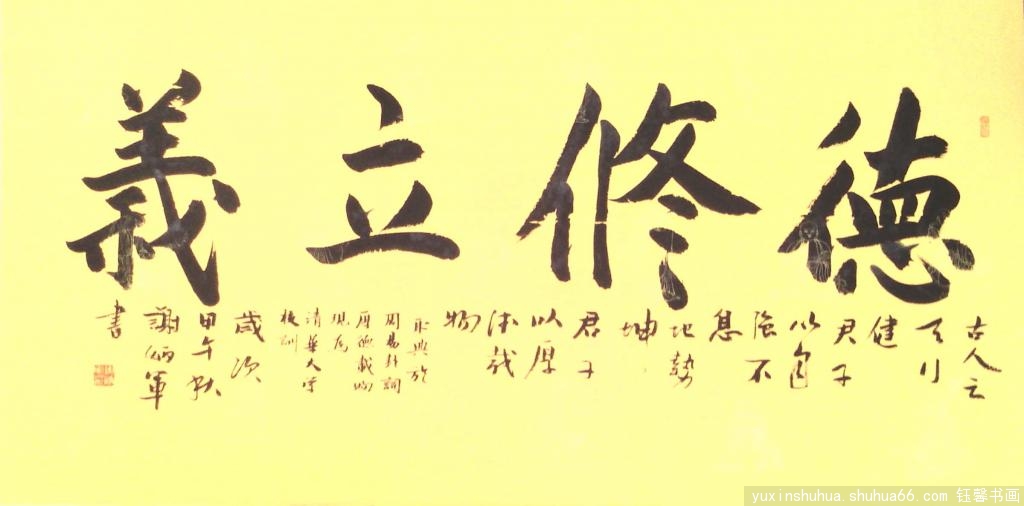 德修立義
古人云
天行
健
君子
以自
强不
息
地勢
坤
君子
以厚
德載
物
取典於
周易卦詞
厚德載物
現為
清華大学
校訓
歲次
甲午秋
謝炳軍
書
yuxinshuhua.shuhua66.com 钰馨书画